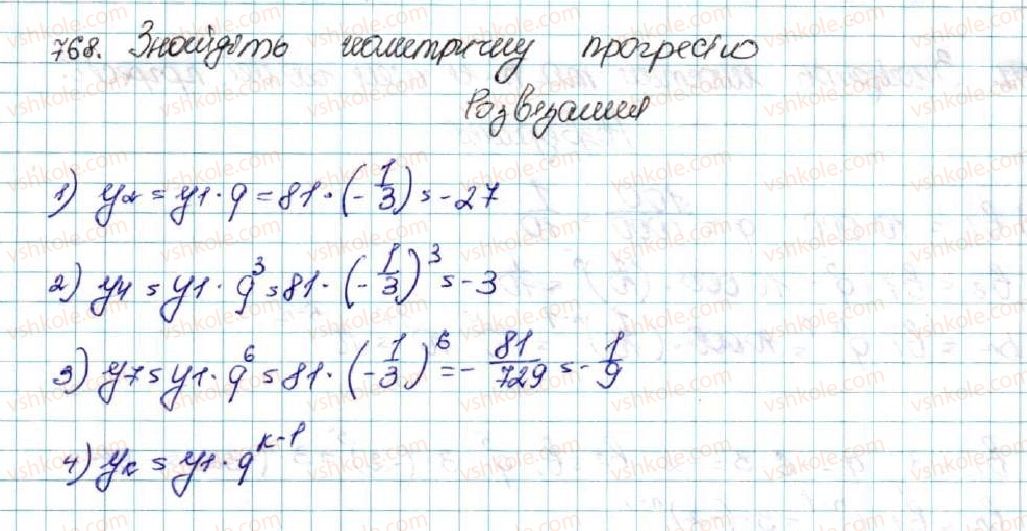 768. Знайдіть геометричну прогресію
Розв'язання
1) y₂ = y₁ · q = 81 · (-1/3) = -27
2) y₄ = y₁ · q³ = 81 · (-1/3)³ = -3
3) y₇ = y₁ · q⁶ = 81 · (-1/3)⁶ = -81/729 = -1/9
4) yₖ = y₁ · q^(k-1)
vshkole.com